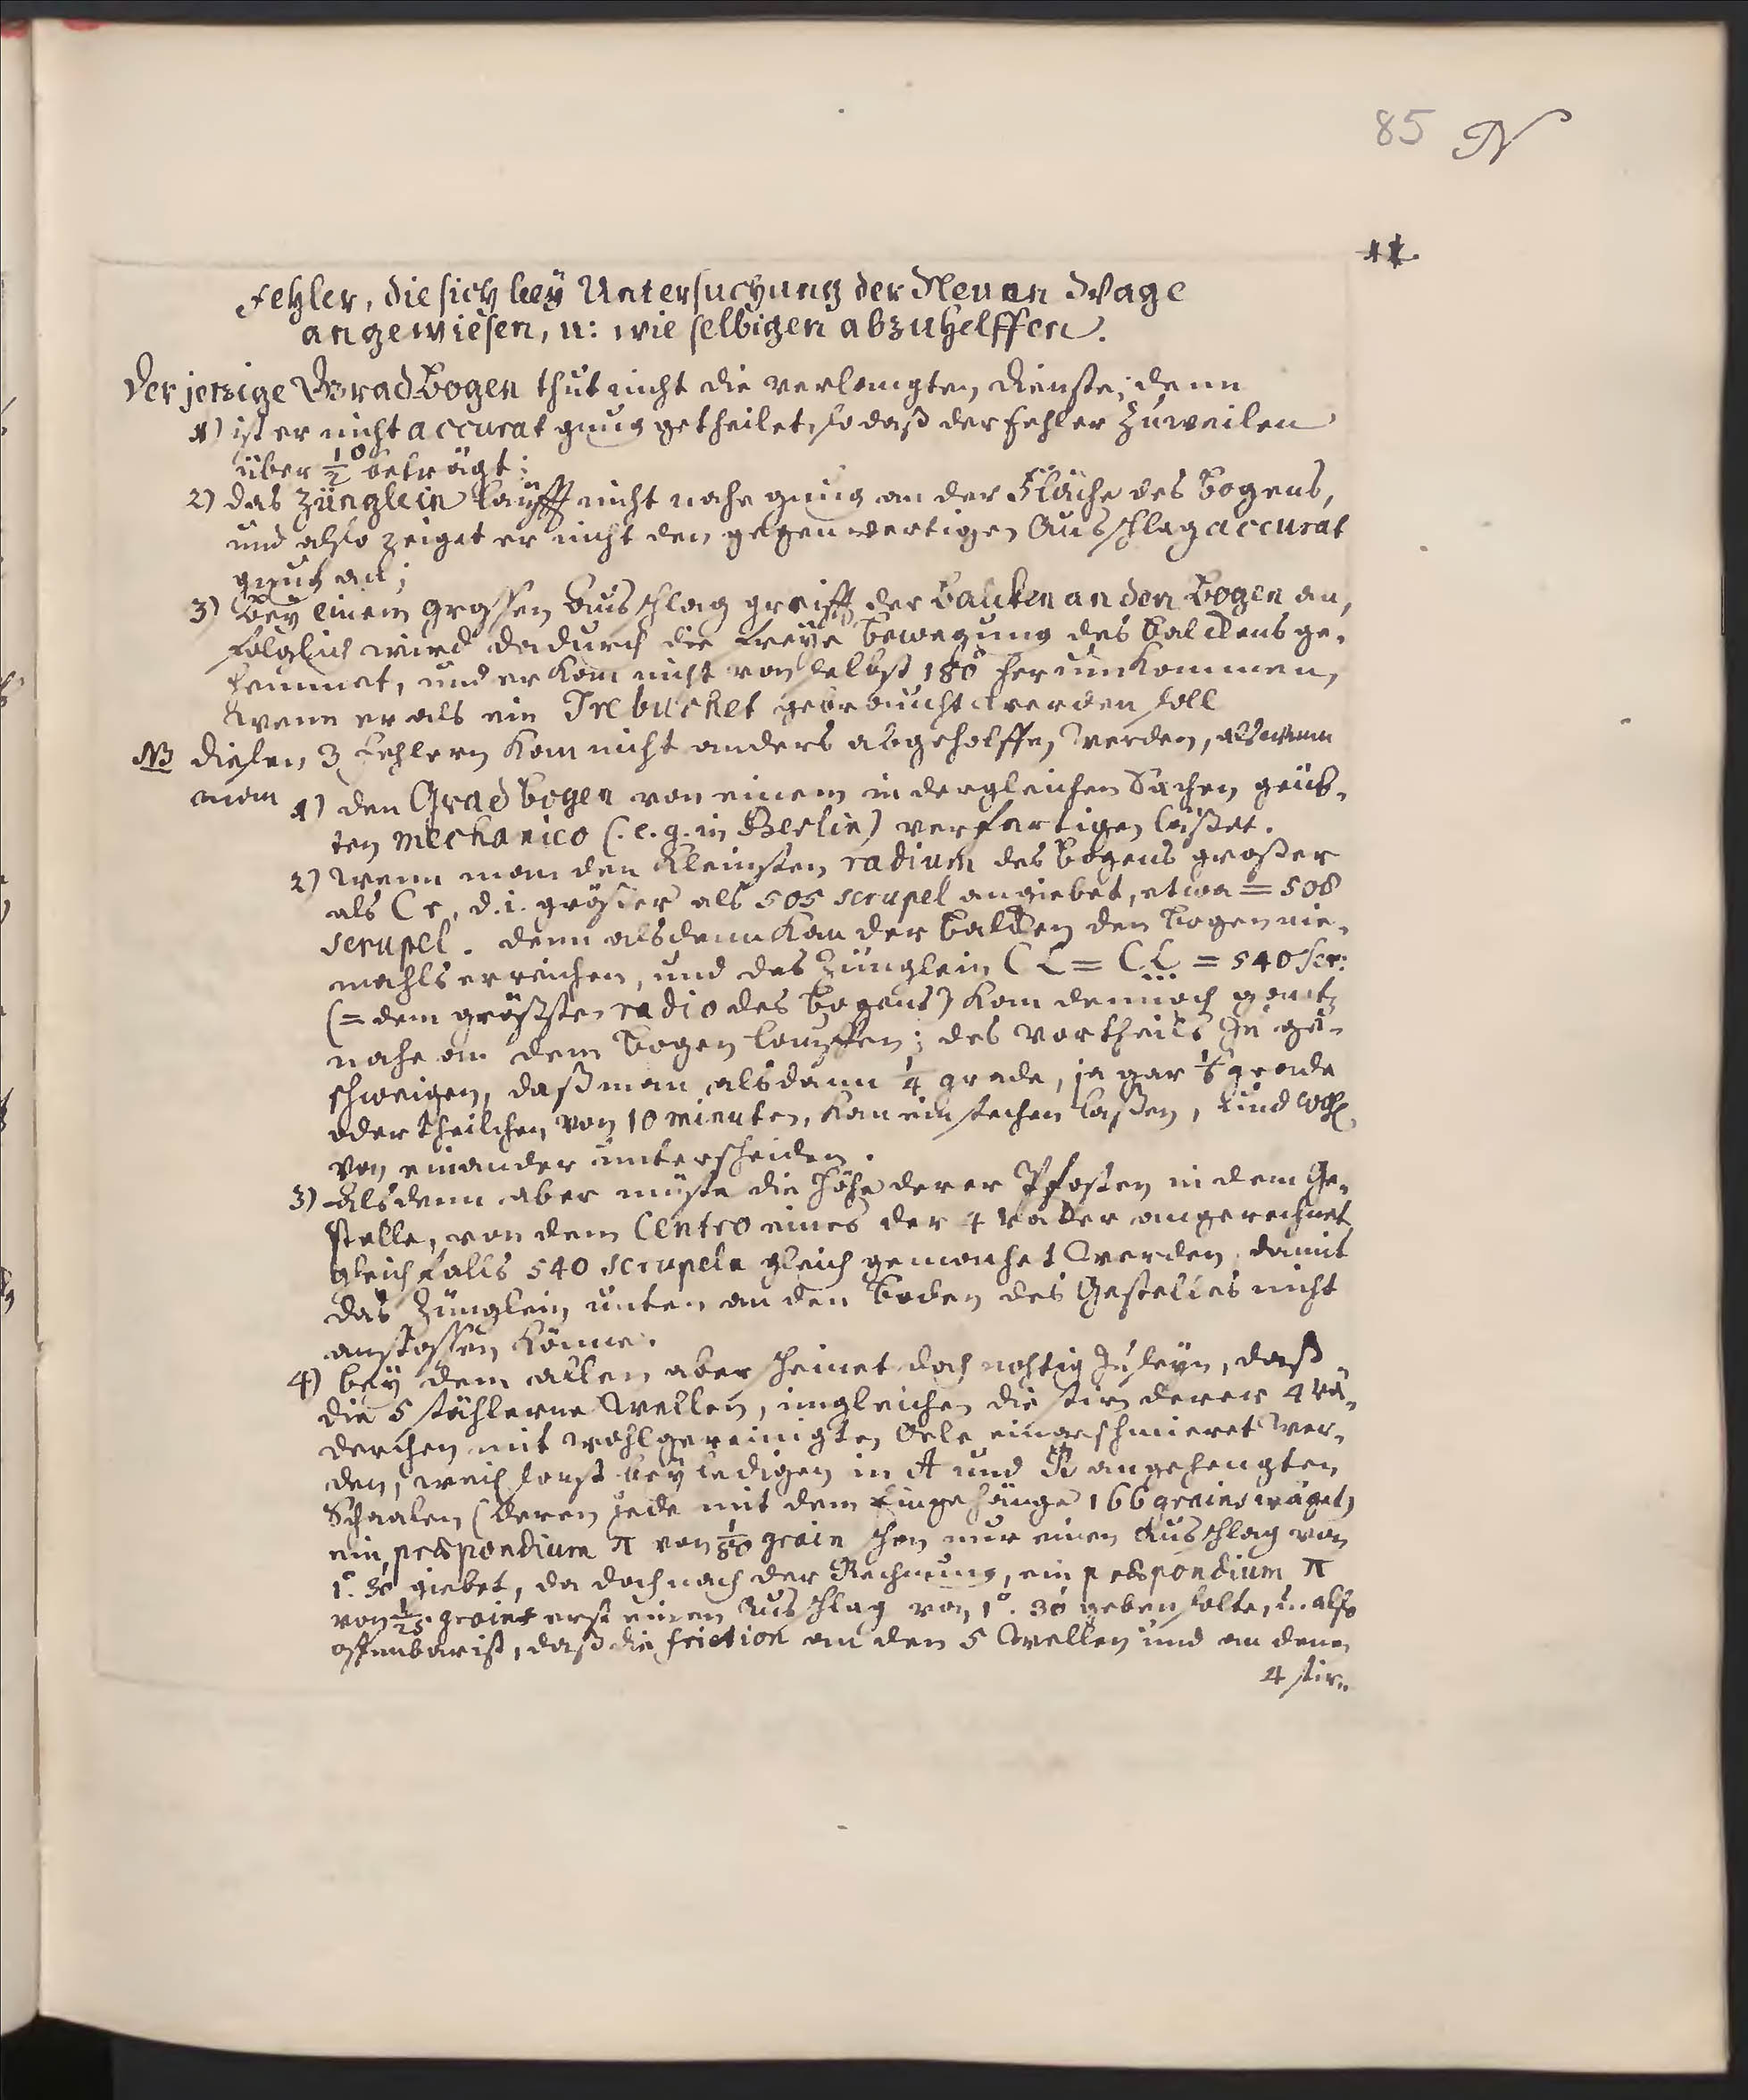 85 N
Fehler, die sich bey Untersuchung der Neuen Wage
angewiesen, u: wie selbigen abzuhelffen.
Der jetzige Gradbogen thut nicht die verlangten Dienste; denn
1) ist er nicht accurat gnug getheilet, so daß der Fehler zuweilen
über 1/2° beträgt;
2) das Zünglein läufft nicht nahe gnug an der Fläche des Bogens,
und also zeiget er nicht den gegenwertigen Ausschlag accurat
gnug an;
3) Bey einem grossen Ausschlag greifft der Balcken an den Bogen an,
folglich wird dadurch die freye Bewegung des Balckens ge-
hemmet, und er kan nicht von selbst 180° herumkommen,
wenn er als ein Trebuchet gebraucht werden soll
NB diesen 3 Fehlern kan nicht anders abgeholffen werden, als wenn
man 1) den Gradbogen von einem in dergleichen Sachen geüb-
ten Mechanico (: e. g. in Berlin) verfertigen läßet.
2) wenn man den kleinsten radium des Bogens großer
als Cr, d. i. größer als 505 scrupel angiebet, etwa = 508
scrupel. denn alsdenn kan der Balcken den Bogen nie-
mahls erreichen, und das Zünglein CL = CL = 540 scr:
(= dem größsten radio des Bogens) kan dennoch gantz
nahe an dem Bogen lauffen; des Vortheils zu ge-
schweigen, daß man alsdann 1/4 grade, ja gar 1/6 grade
oder theilchen von 10 minuten, kan einstechen laßen, und
von einander unterscheiden.
3) Alsdenn aber müste die Höhe derer Pfosten in dem Ge-
stelle, von dem Centro eines der 4 Räder angerechnet
gleichfalls 540 scrupeln gleich gemachet werden, damit
das Zünglein unten an den Boden des Gestelles nicht
anstossen könne.
4) bey dem allen aber scheinet doch nohtig zu seyn, daß
die 5 stählerne Wellen, imgleichen die stirn derer 4 Rä-
derchen mit wohlgereinigten Oele eingeschmieret wer-
den, weil sonst bey ledigen in A und B angehengten
Schaalen (deren jede mit dem Eingehänge 166 grains wäget)
ein præpondium π von 1/80 grain schon nur einen Ausschlag von
1°. 30' giebet, da doch nach der Rechnung, ein præpondium π
von 1/25 grains erst einen Ausschlag von 1°. 30' geben solte, u. also
offenbar ist, daß die friction an den 5 Wellen und an denen
4 stirn-